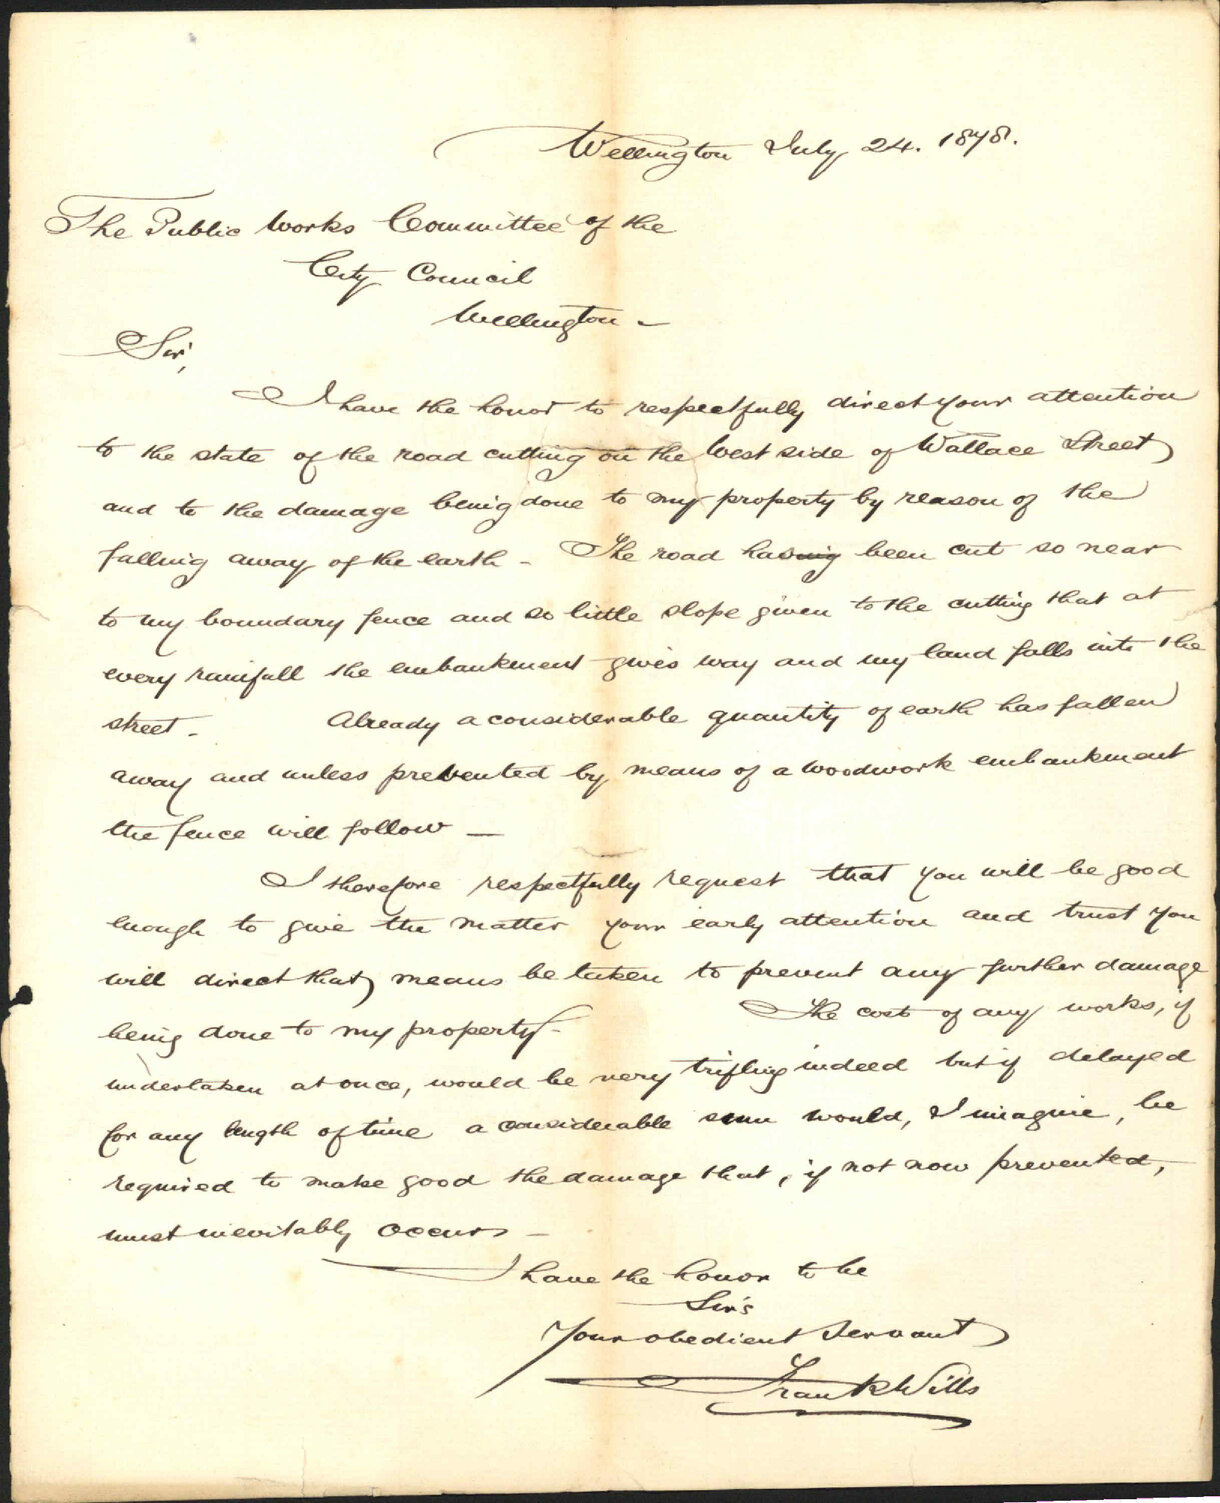 Wellington July 24. 1878.
The Public Works Committee of the
City Council
Wellington –
Sir,
I have the honor to respectfully direct your attention
to the state of the road cutting on the West side of Wallace Street
and to the damage being done to my property by reason of the
falling away of the earth – The road having been cut so near
to my boundary fence and so little slope given to the cutting that at
every rainfall the embankment gives way and my land falls into the
street – Already a considerable quantity of earth has fallen
away and unless prevented by means of a woodwork embankment
the fence will follow –
I therefore respectfully request that you will be good
enough to give the matter your early attention and trust you
will direct that means be taken to prevent any further damage
being done to my property – The cost of any works, if
undertaken at once, would be very trifling indeed but if delayed
for any length of time a considerable sum would, I imagine, be
required to make good the damage that, if not now prevented,
must inevitably occur –
I have the honor to be
Sir's
Your obedient Servant
Frank Wills